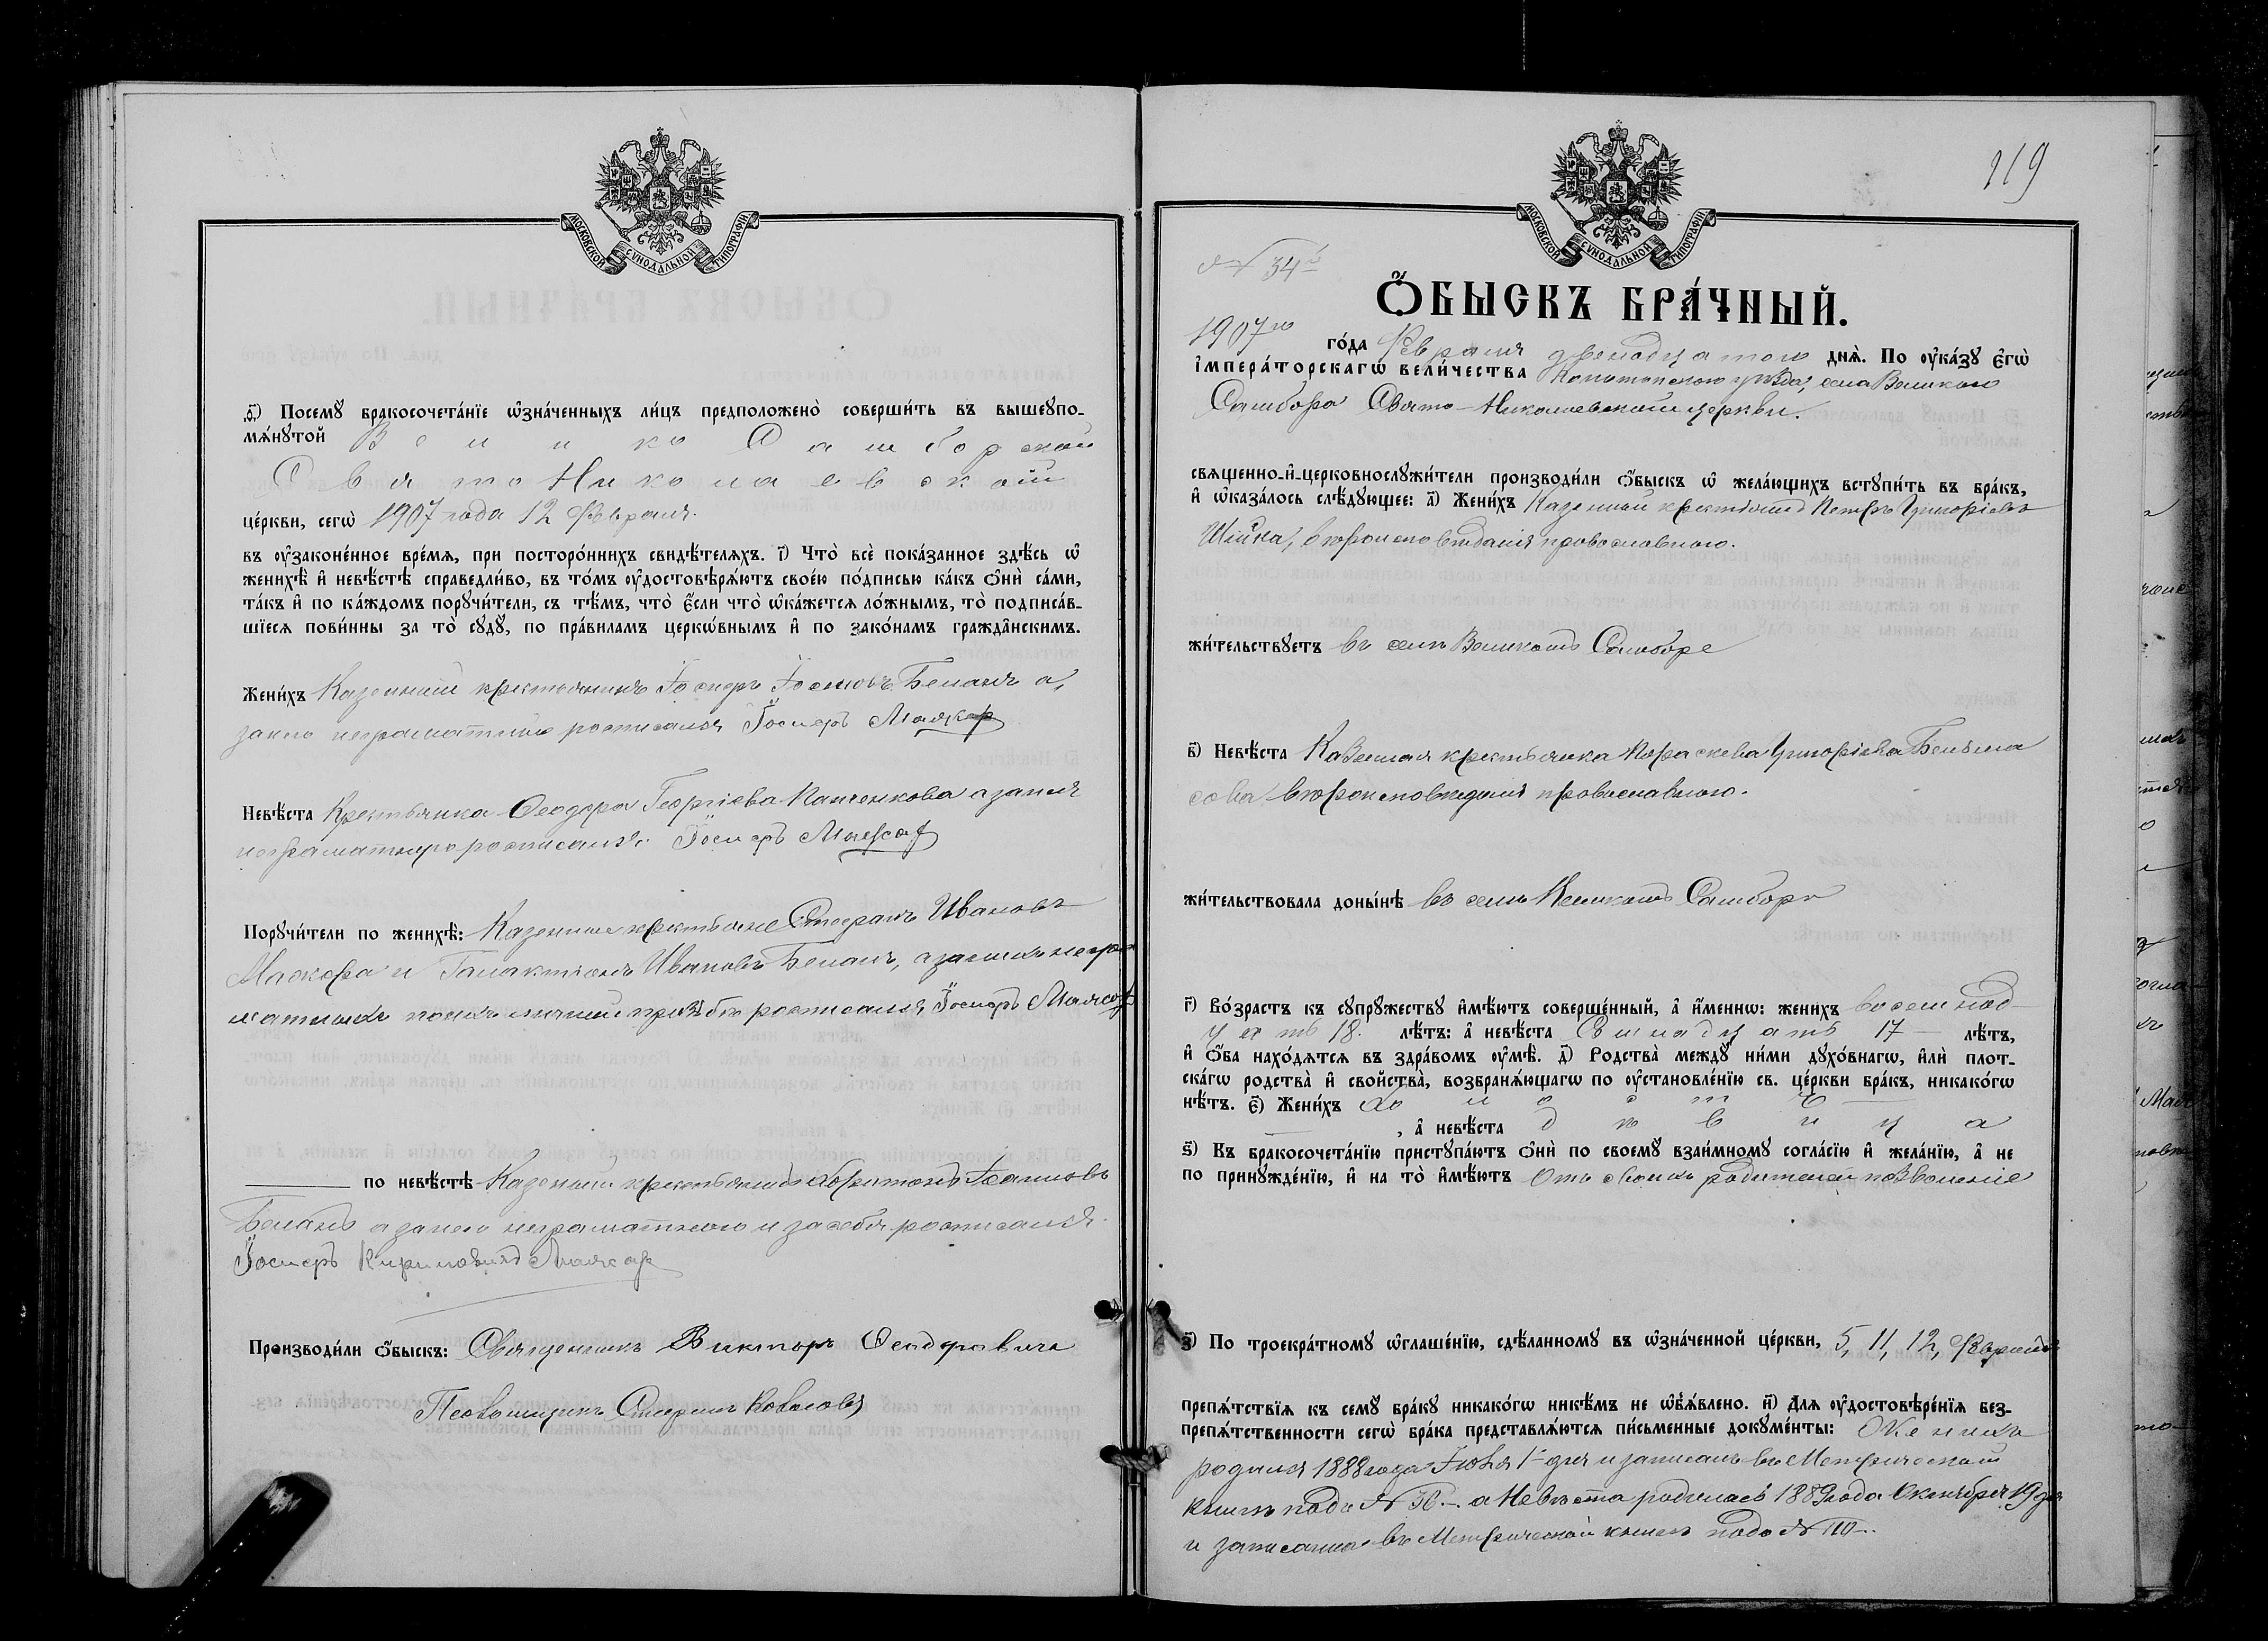 МОСКОВСКОЙ СѴНОДАЛЬНОЙ ТИПОГРАФІИ
ѳ҃) Посемꙋ̀ бракосочета́нїе ѡ҆зна́ченныхъ ли́цъ предположенѡ̀ соверши́ть въ вышеꙋпо-
мѧ́нꙋтой Велико Самборской
Свято Николаевской
це́ркви, сегѡ̀ 1907 года 12 Февраля.
въ ᲂу҆законе́нное вре́мѧ, при посторо́ннихъ свидѣ́телѧхъ. і҃) Что̀ всѐ пока́занное здѣ́сь ѡ҆
женихѣ̀ и҆ невѣ́стѣ справедли́во, въ то́мъ ᲂу҆достовѣрѧ́ютъ свое́ю по́дписью ка́къ ѻ҆нѝ са́ми,
та́къ и҆ по ка́ждомъ порꙋчи́тели, съ тѣ́мъ, что̀ є҆́сли что̀ ѡ҆ка́жетсѧ ло́жнымъ, то̀ подписа́в-
шїесѧ пови́нны за то̀ сꙋдꙋ̀, по пра́виламъ церкѡ́внымъ и҆ по зако́намъ гражда̑нскимъ.
Жени́хъ Казенный крестьянинъ Іосифъ Іосифовъ Беланъ а,
за него неграматнаго росписался Іосифъ Маякор
Невѣ́ста Крестьянка Ѳеодора Георгіева Панченкова а за нея
неграматную росписался. Іосифъ
Порꙋчи́тели по женихѣ̀: Казенные крестьяне Стефанъ Ивановъ
и Галактіонъ Ивановъ Беланъ, а за нихъ негра
матныхъ по ихъ личной прозьбѣ росписался Іосифъ
по невѣ́стѣ Казенный крестьянинъ Іоанновъ
Беланъ а за него неграматнаго и за себя росписался.
Іосифъ Кириловичъ
Производи́ли ѻ҆́быскъ: Священникъ Викторъ Ѳеодоровичъ
Псаломщикъ Стефанъ
119
МОСКОВСКОЙ СѴНОДАЛЬНОЙ ТИПОГРАФІИ
№ 34й
Ѻ҆́БЫСКЪ БРА́ЧНЫЙ.
1907го го́да Февраля двенадцатого днѧ̀. По ᲂу҆ка́зꙋ є҆гѡ̀
і҆мпера́торскагѡ вели́чества Конотопского уезда, села Великого
Самбора Свято-Николаевской церкви.
свѧщенно-и҆-церковнослꙋжи́тели производи́ли ѻ҆́быскъ ѡ҆ жела́ющихъ встꙋпи́ть въ бра́къ,
и҆ ѡ҆каза́лось слѣ́дꙋющее: а҃) Жени́хъ Казенный крестьянинъ Петръ Григоріевъ
Шійка, вероисповеданія православного.
жи́тельствꙋетъ въ селе Великомъ Самборе
в҃) Невѣ́ста Казенная крестьянка Параскева Григоріева
вероисповедания православного.
жи́тельствовала доны́нѣ въ селе Великомъ Самборе
г҃) Во́зрастъ къ сꙋпрꙋ́жествꙋ и҆мѣ́ютъ соверше́нный, а҆ и҆́меннѡ: жени́хъ восемнад-
цеть 18. лѣ́тъ: а҆ невѣ́ста Семнадцать 17 лѣ́тъ,
и҆ ѻ҆́ба нахо́дѧтсѧ въ здра́вомъ ᲂу҆мѣ̀. д҃) Родства̀ междꙋ̀ ни́ми дꙋхо́внагѡ, и҆лѝ плот-
ска́гѡ родства̀ и҆ сво́йства̀, возбранѧ́ющагѡ по ᲂу҆становле́нїю св. це́ркви бра́къ, никако́гѡ
нѣ́тъ. є҃) Жени́хъ холостъ
, а҆ невѣ́ста девица
ѕ҃) Къ бракосочета́нїю пристꙋпа́ютъ ѻ҆нѝ по своемꙋ̀ взаи́мномꙋ согла́сїю и҆ жела́нїю, а҆ не
по принꙋжде́нїю, и҆ на то̀ и҆мѣ́ютъ Отъ своихъ родителей позволеніе
з҃) По троекра́тномꙋ ѡ҆глаше́нїю, сдѣ́ланномꙋ въ ѡ҆зна́ченной це́ркви, 5, 11, 12, Февраля
препѧ́тствїѧ къ семꙋ̀ бра́кꙋ никако́гѡ никѣ́мъ не ѡ҆б̾ѧ́влено. и҃) Длѧ ᲂу҆достовѣре́нїѧ без-
препѧ́тственности сегѡ̀ бра́ка представлѧ́ютсѧ пи́сьменные докꙋме́нты: Женихъ
родился 1888 года Іюня 1-дня и записанъ въ Метрической
книге подъ № а Невеста родилась 1889 года Октября 19 дня
и записана въ Метрической книге подъ № 110.